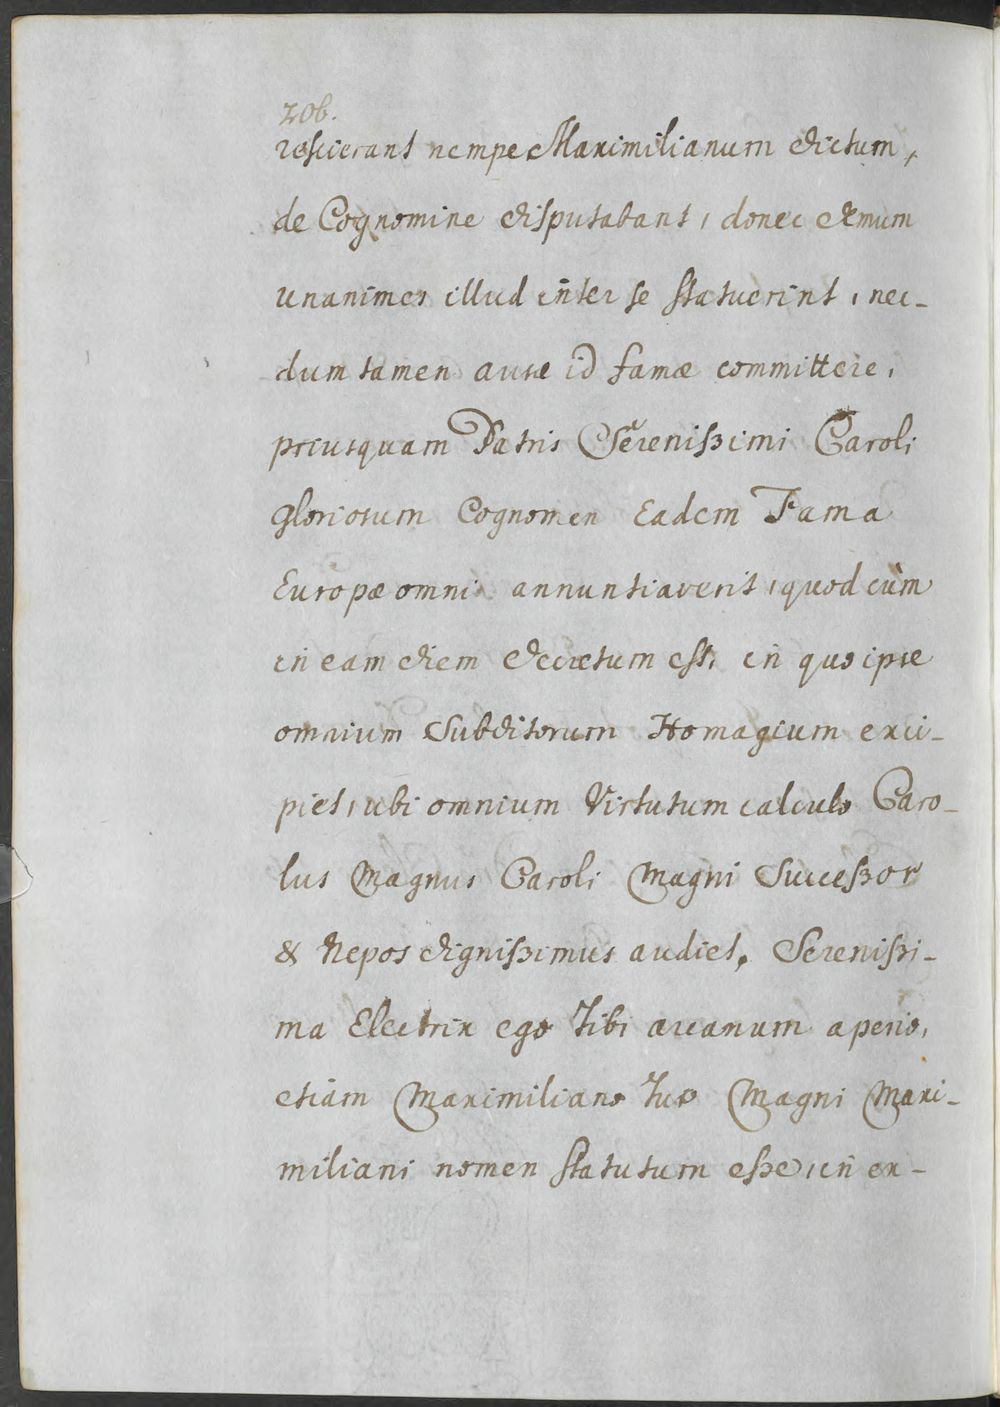 206.
rescierant nempe Maximilianum dictum,
de Cognomine disputabant, donec demum
unanimes illud inter se statuerint, nec-
dum tamen ausæ id famæ committere,
priusquam Patris Serenissimi Caroli
gloriosum Cognomen Eadem Fama
Europæ omni annuntiaverit, quod cùm
in eam diem decretum est, in quo ipse
omnium Subditorum Homagium exci-
piet, ubi omnium Virtutum calculo Caro-
lus Magnus Caroli Magni Successor
& Nepos dignissimus audiet. Serenissi-
ma Electrix ego Tibi arcanum aperio,
etiam Maximiliano Tuo Magni Maxi-
miliani nomen statutum esse, in ex-